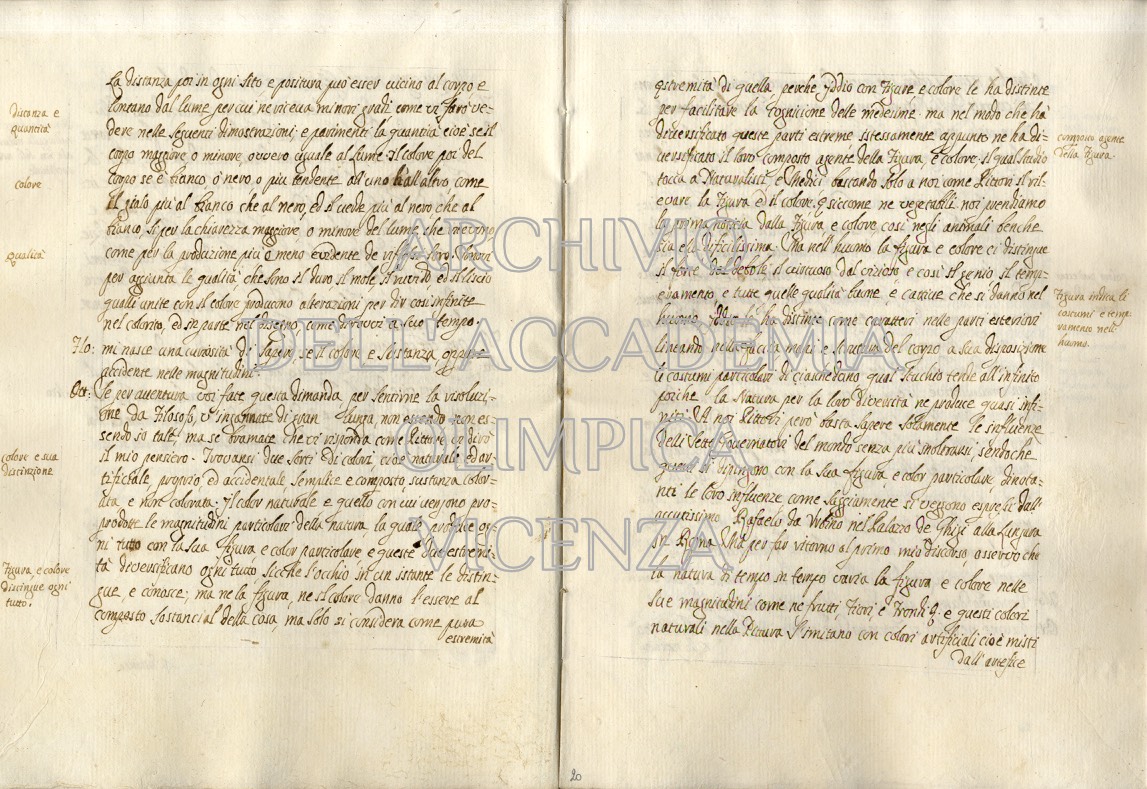 La distanza poi in ogni sito e positura può esser vicino al corpo e
lontano dal lume per cui ne riceva minori gradi come vi farò ve-
distanza e
quantità
dere nelle seguenti dimostrazioni; e parimenti la quantità cioè se il
corpo maggiore o minore, ovvero eguale al lume. Il colore poi del
colore
corpo se è bianco, ò nero, o più tendente all'uno all'altro, come
il gialo più al bianco che al nero, ed il verde più al nero, che al
bianco. Si per la chiarezza maggiore o minore del lume che ricevono
qualità
come per la produzione più o meno evidente de riflessi loro.
per aggiunta le qualità che sono il duro il mole, il ruvido, ed il liscio
quali unite con il colore producono alterazioni per dir così infinite
nel colorito, ed in parte nel disegno, come dirovvi a suo tempo.
Flo: mi nasce una curiosità di sapere se il colore e sostanza oppure
accidente nelle magnitudini.
Ott: Se per aventura voi fate questa dimanda per sentirne la risoluzi-
one da Filosofo, v'ingannate di gran lunga, non essendo
sendo io tale; ma se bramate che vi risponda come Pittore, vi dirò
colore e sua
distinzione
il mio pensiero. Trovansi due sorti di colori, cioè naturale ed ar-
tificiale, proprio ed accidentale semplice e composto sustanza color-
ata, e non colorata. Il color naturale e quello con cui vengono pro-
prodotte le magnitudini particolari della natura, la quale produce og-
ni tutto con la sua figura e color particolare, e queste due estremi-
Figura, e colore
distingue ogni
tutto.
tà diversificano ogni tutto sicche l'occhio in un istante le distin-
gue, e conosce; ma ne la figura, ne il colore danno l'essere al
composto sostancial della cosa, ma solo si considera come pura
estremità
estremità di quella perche Iddio con figure e colore le ha distinte
per facilitare la cognitione delle medeme. ma nel modo che hà
composto agente
della figura
diversificato queste parti estreme istessamente appunto ne ha di-
versificato il loro composto agente della figura, e colore. il qual studio
tocca a Naturalisti, e Medici bastando solo a noi come Pittori il ril-
evare la figura ed il colore. e siccome ne vegetabili noi prendiamo
la prima notizia dalla figura e colore, così negli animali benche
sia ela dificilissima. Ma nell'huomo la figura e colore ci distingue
il forte del debole, il virtuoso dal criciato e così il genio il temp-
Figura indica li
costumi e temp-
eramento nell'
huomo.
eramento, e tutte quelle qualità buone, e cattive che si danno nel
huomo. Iddio le ha distinte come caratteri nelle parti esteriori
lineando nella faccia mani e struttura del corpo a sua disposizione
li costumi particolari di ciaschedeuno qual stuchio tende all'infinito
poiche la Natura per la loro diversità ne produce quasi infi-
niti. A noi Pittori però basta sapere solamente le influenze
delli sette Governatori del mondo senza più inolerarsi, sendoche
questi si dipingono con la sua figura e color particolare, dinota-
nti le loro influenze come saggiamente si vegono espressi dall'
accuratissimo Rafaelo da Urbino nel Palazzo de Ghisi alla Lungara
in Roma. Mà per far ritorno al primo mio discorso, asserirò che
la natura di tempo in tempo varia la figura, e colore nelle
sue magnitudini come ne frutti, Fiori, e Frondi &. e questi colori
naturali nella Pittura s'imitano con colori artificiali cioè misti
dall'artefice
20
ARCHIVIO
DELL'ACCADEMIA
OLIMPICA
VICENZA